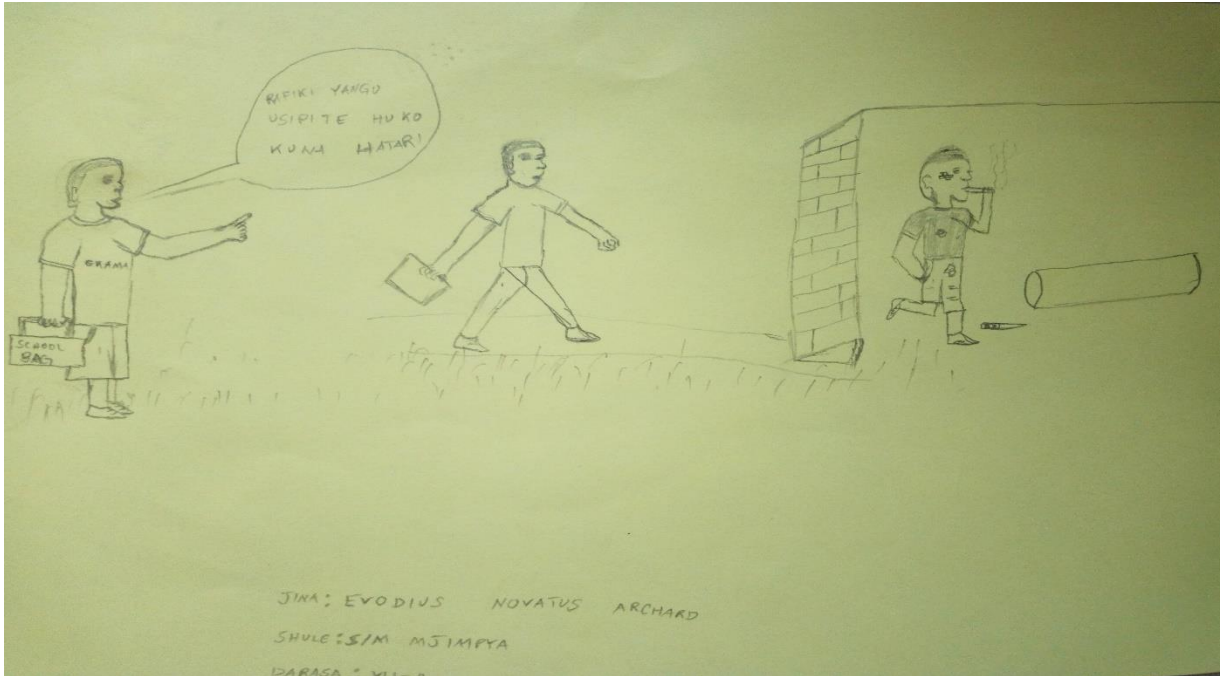 RAFIKI YANGU
USIPITE HUKO
KUNA HATARI
SCHOOL
BAG
JINA: EVODIUS NOVATUS ARCHARD
SHULE: S/M MJIMPYA
DARASA: